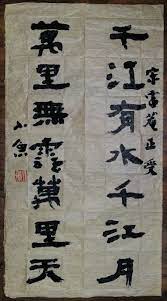 正受
千江有水千江月
萬里無雲萬里天
小魚